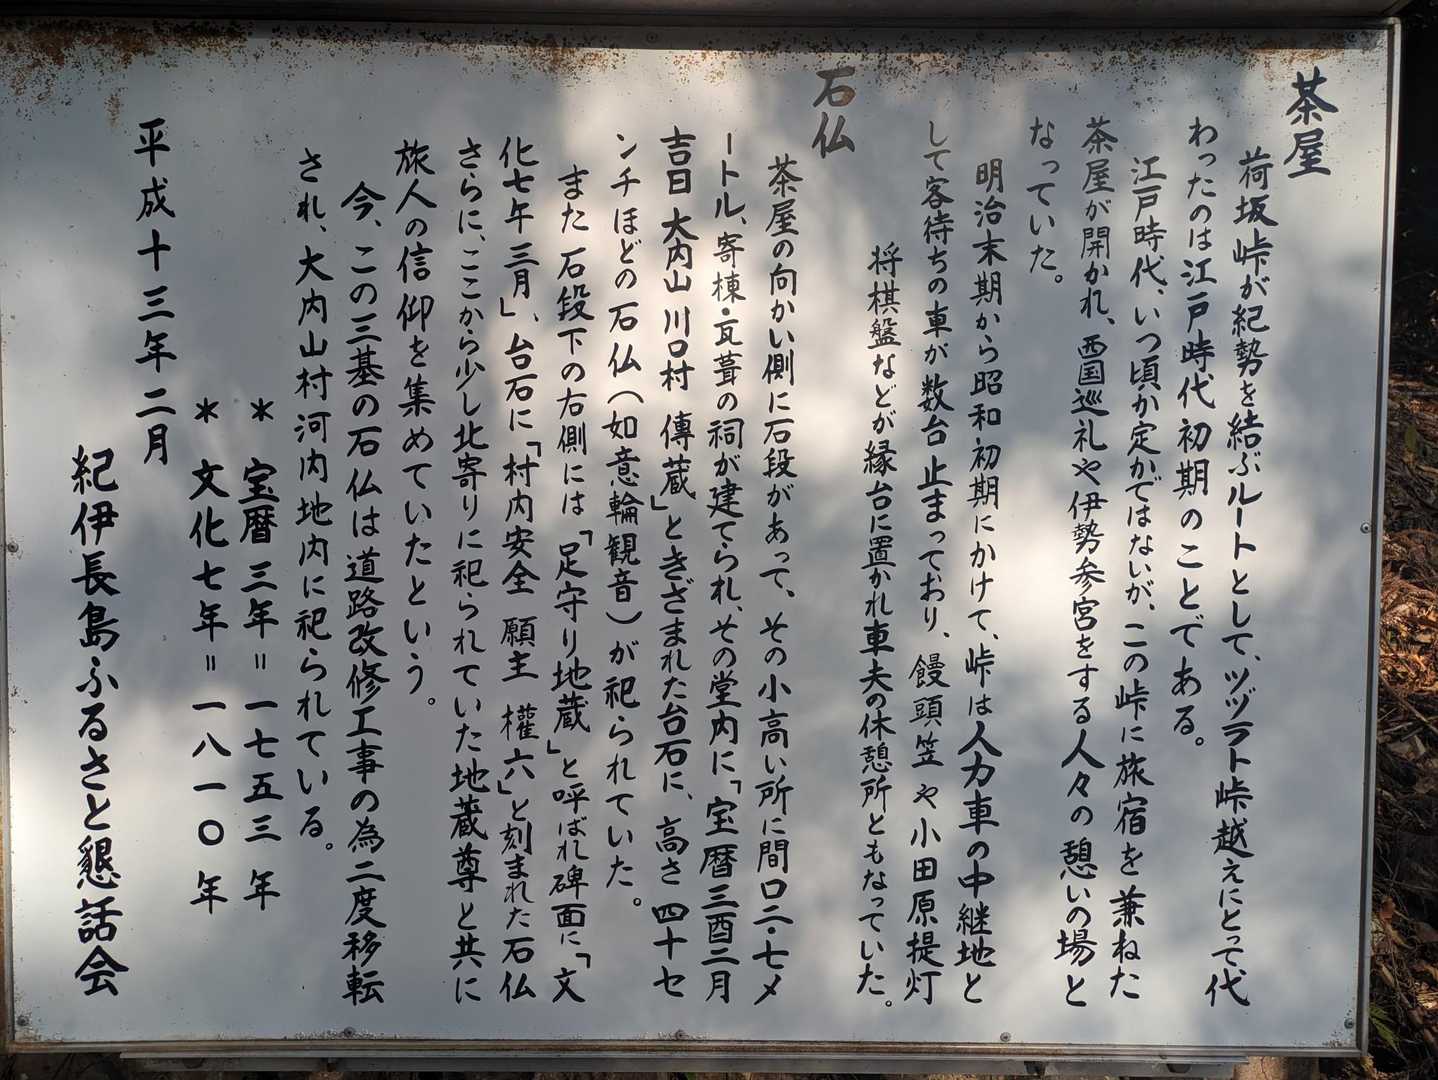 茶屋
荷坂峠が紀勢を結ぶルートとして、ツヅラト峠越えにとって代
わったのは江戸時代初期のことである。
江戸時代、いつ頃か定かではないが、この峠に旅宿を兼ねた
茶屋が開かれ、西国巡礼や伊勢参宮をする人々の憩いの場と
なっていた。
明治末期から昭和初期にかけて、峠は人力車の中継地と
して客待ちの車が数台止まっており、饅頭笠や小田原提灯
将棋盤などが縁台に置かれ車夫の休憩所ともなっていた。
石仏
茶屋の向かい側に石段があって、その小高い所に間口二・七メ
ートル、寄棟・瓦葺の祠が建てられ、その堂内に「宝暦三酉三月
吉日 大内山 川口村 傳蔵」ときざまれた台石に、高さ四十セ
ンチほどの石仏(如意輪観音)が祀られていた。
また石段下の右側には「足守り地蔵」と呼ばれ碑面に「文
化七年三月」、台石に「村内安全 願主 權六」と刻まれた石仏
さらに、ここから少し北寄りに祀られていた地蔵尊と共に
旅人の信仰を集めていたという。
今、この三基の石仏は道路改修工事の為二度移転
され、大内山村河内地内に祀られている。
＊ 宝暦三年＝一七五三年
＊ 文化七年＝一八一〇年
平成十三年二月
紀伊長島ふるさと懇話会